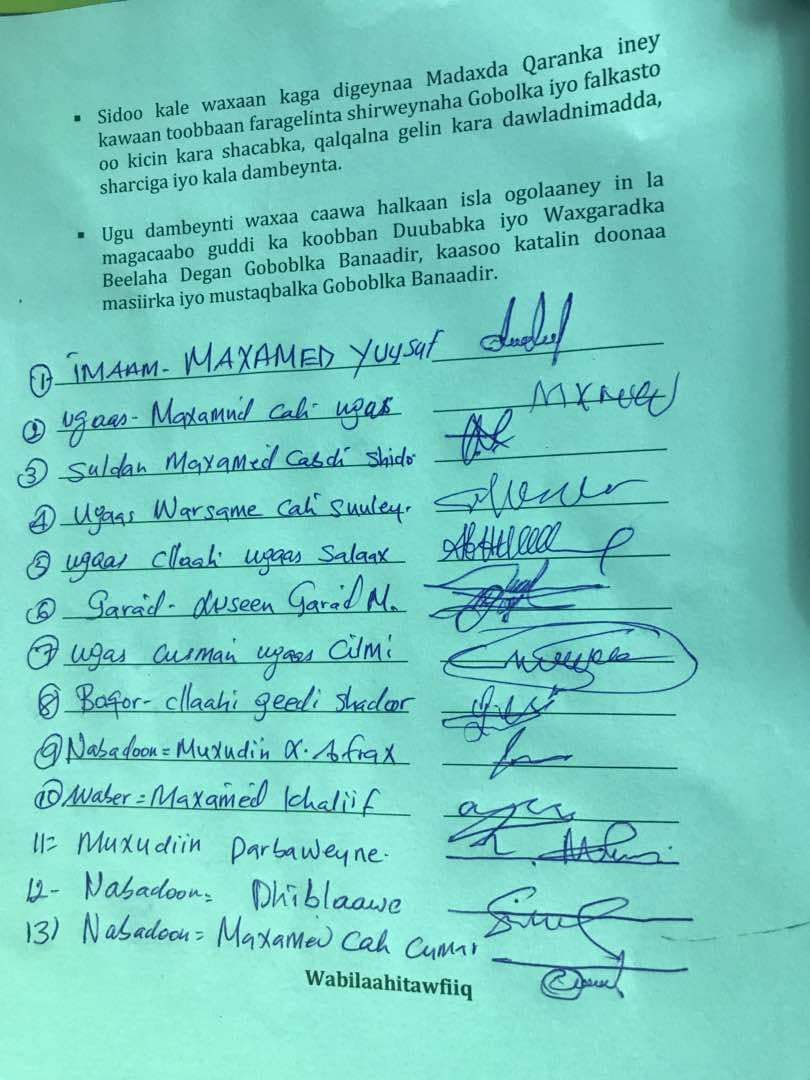 ▪ Sidoo kale waxaan kaga digeynaa Madaxda Qaranka iney
kawaan toobbaan faragelinta shirweynaha Gobolka iyo falkasto
oo kicin kara shacabka, qalqalna gelin kara dawladnimadda,
sharciga iyo kala dambeynta.
▪ Ugu dambeynti waxaa caawa halkaan isla ogolaaney in la
magacaabo guddi ka koobban Duubabka iyo Waxgaradka
Beelaha Degan Goboblka Banaadir, kaasoo katalin doonaa
masiirka iyo mustaqbalka Goboblka Banaadir.
① IMAAM- MAXAMED YUUSUF
② Ugaas- Maxamuud Cali ugas
③ Suldan Maxamed Cabdi Shido
④ Ugaas Warsame Cali Suuley.
⑤ ugaas Cllaahi ugaas Salaax
⑥ Garaad- Garaad M.
⑦ ugas Cusman ugaas Cilmi
⑧ Boqor- Cllaahi geedi Shadoor
⑨ Nabadoon = Muxudin X. Afrax
⑩ Waber = Maxamed Khaliif
11= Muxudiin Darbaweyne.
12- Nabadoon= Dhiblaawe
13) Nabadoon = Maxamed Cali Cumar
Wabilaahitawfiiq